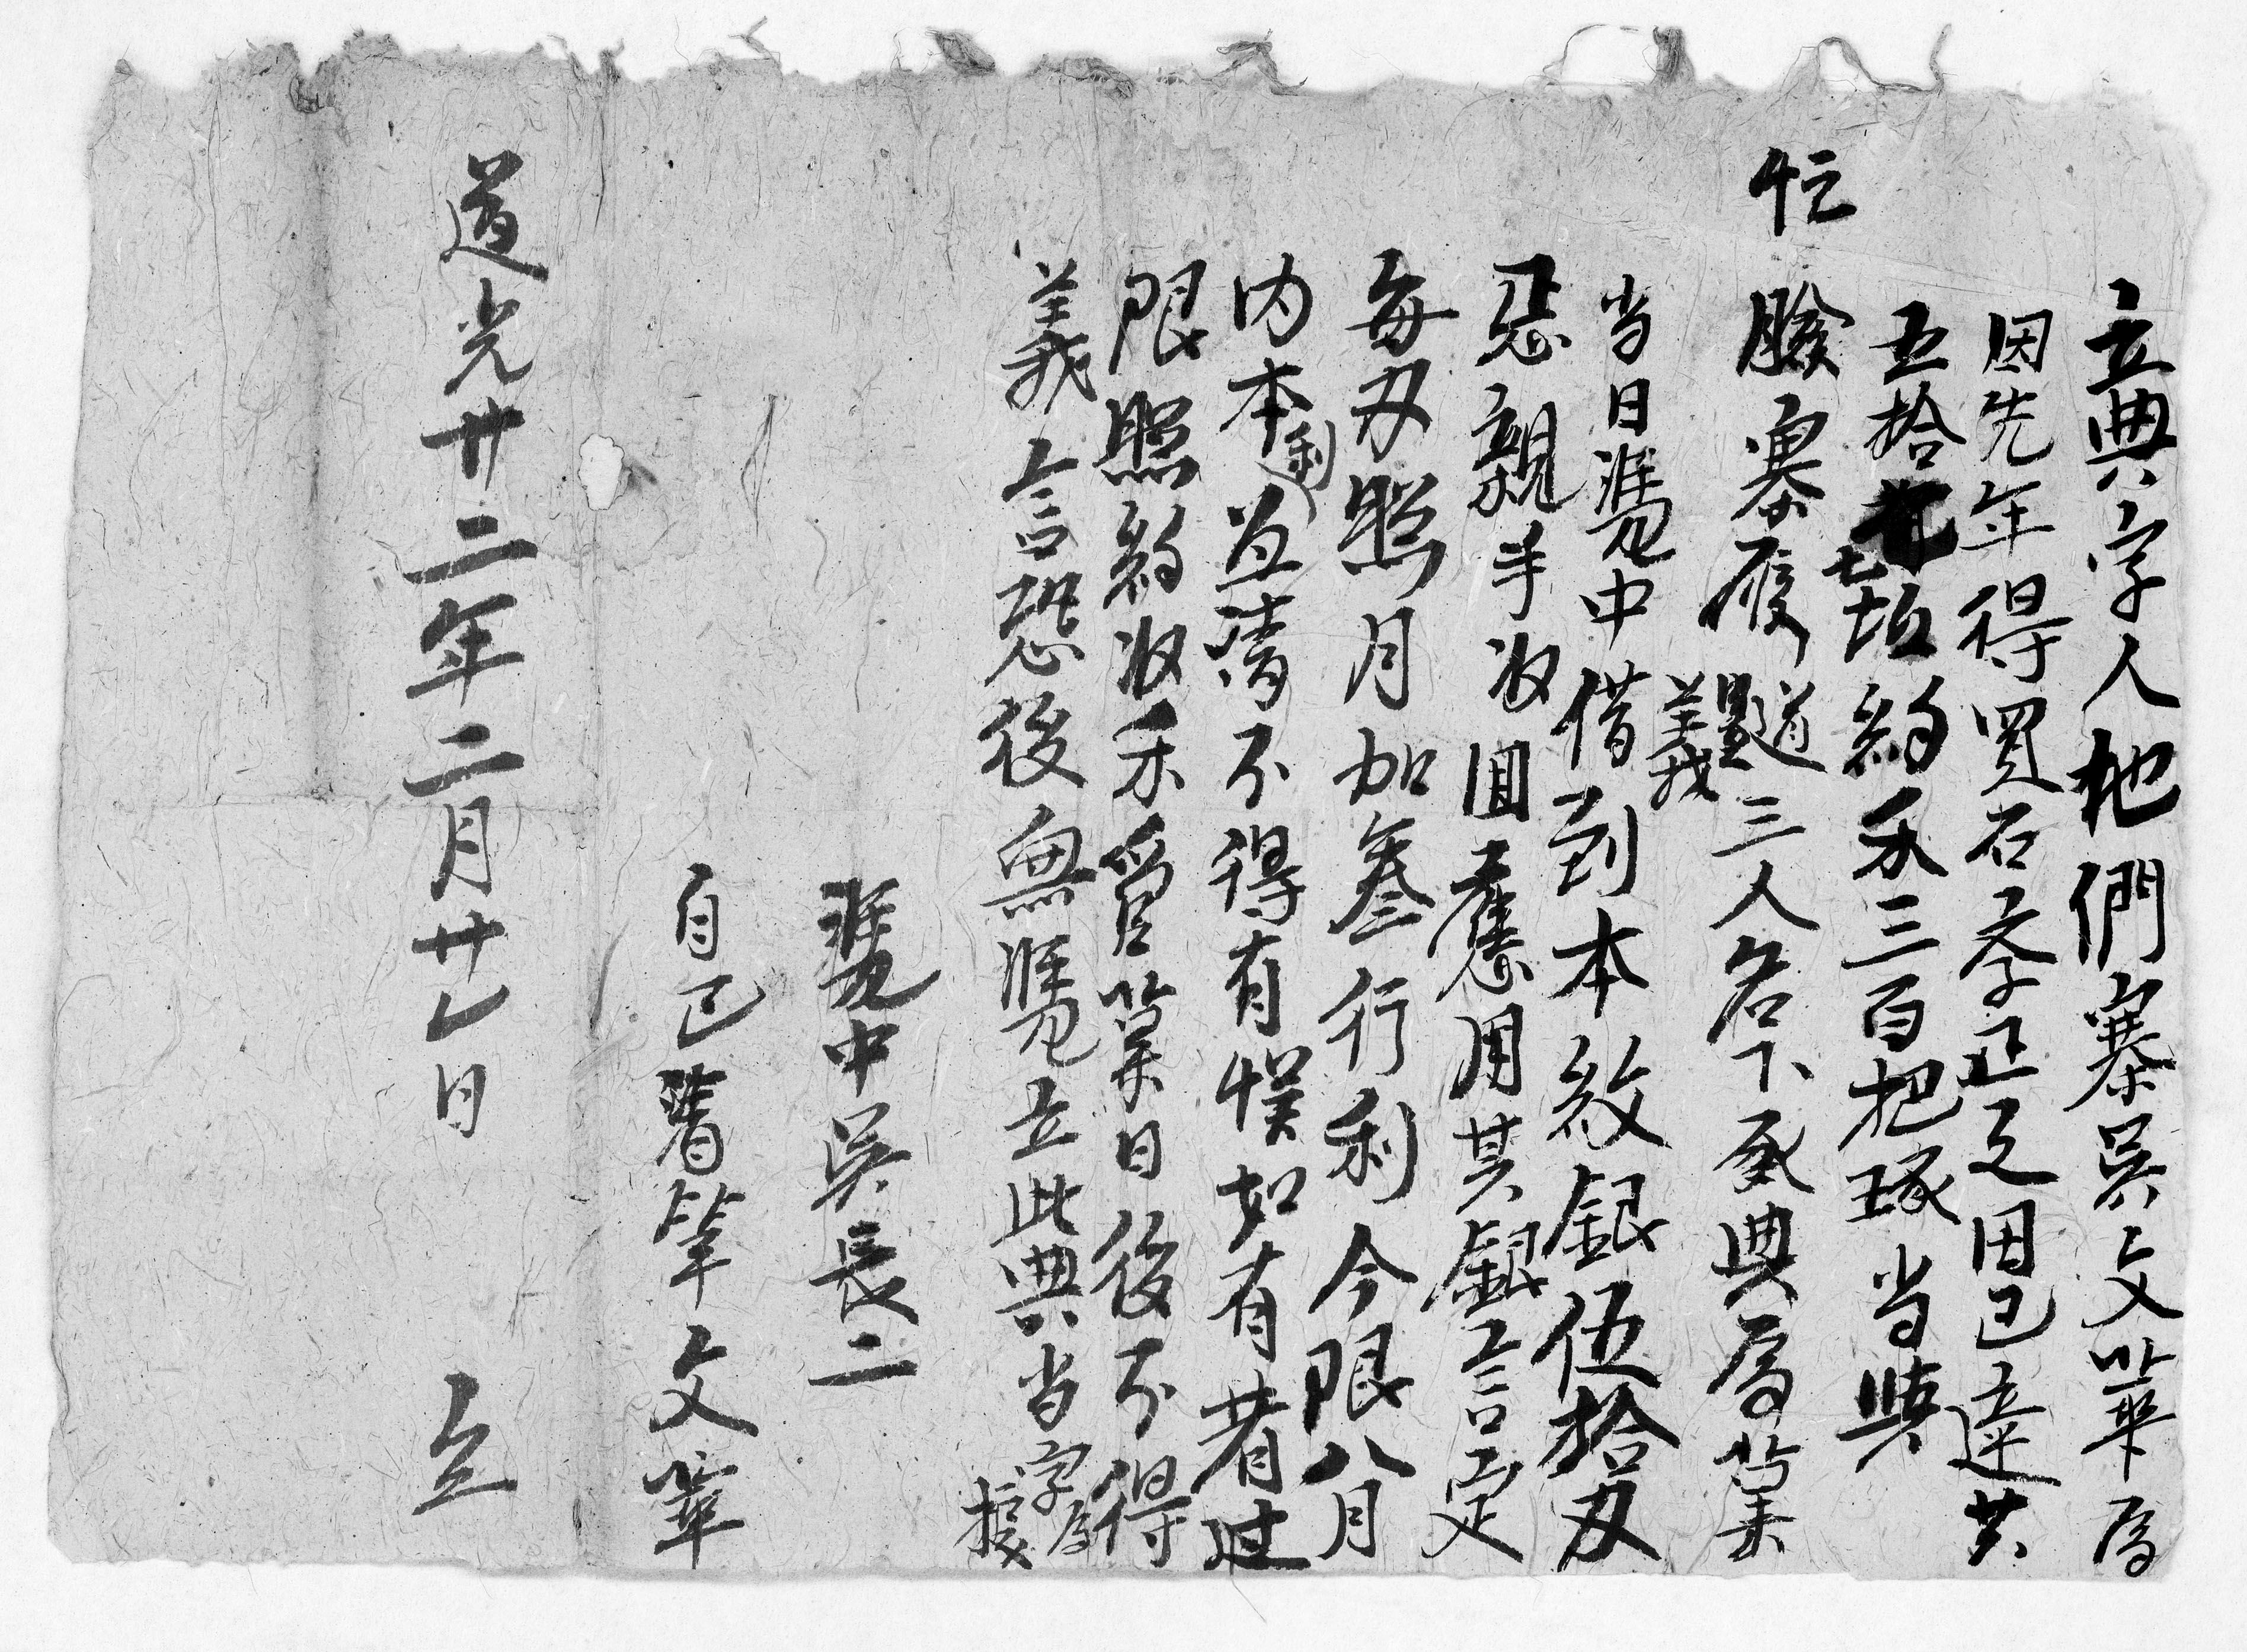 立典字人杝們寨吳文華為
因先年得買石孝正之田己達共
五拾七坵約禾三百把琢当與
忙
滕寨廕道義三人名下承典為業
当日憑中借到本紋銀伍拾刄
惡親手汲囬應用其銀言定
每刄照月加叁行利今限八月
内本利並清不得有悞如有者过
限照約汲禾管業日後不得
義言恐後無憑立此典当字為據
憑中吳長二
自己請筆文華
道光廿二年二月廿七日 立